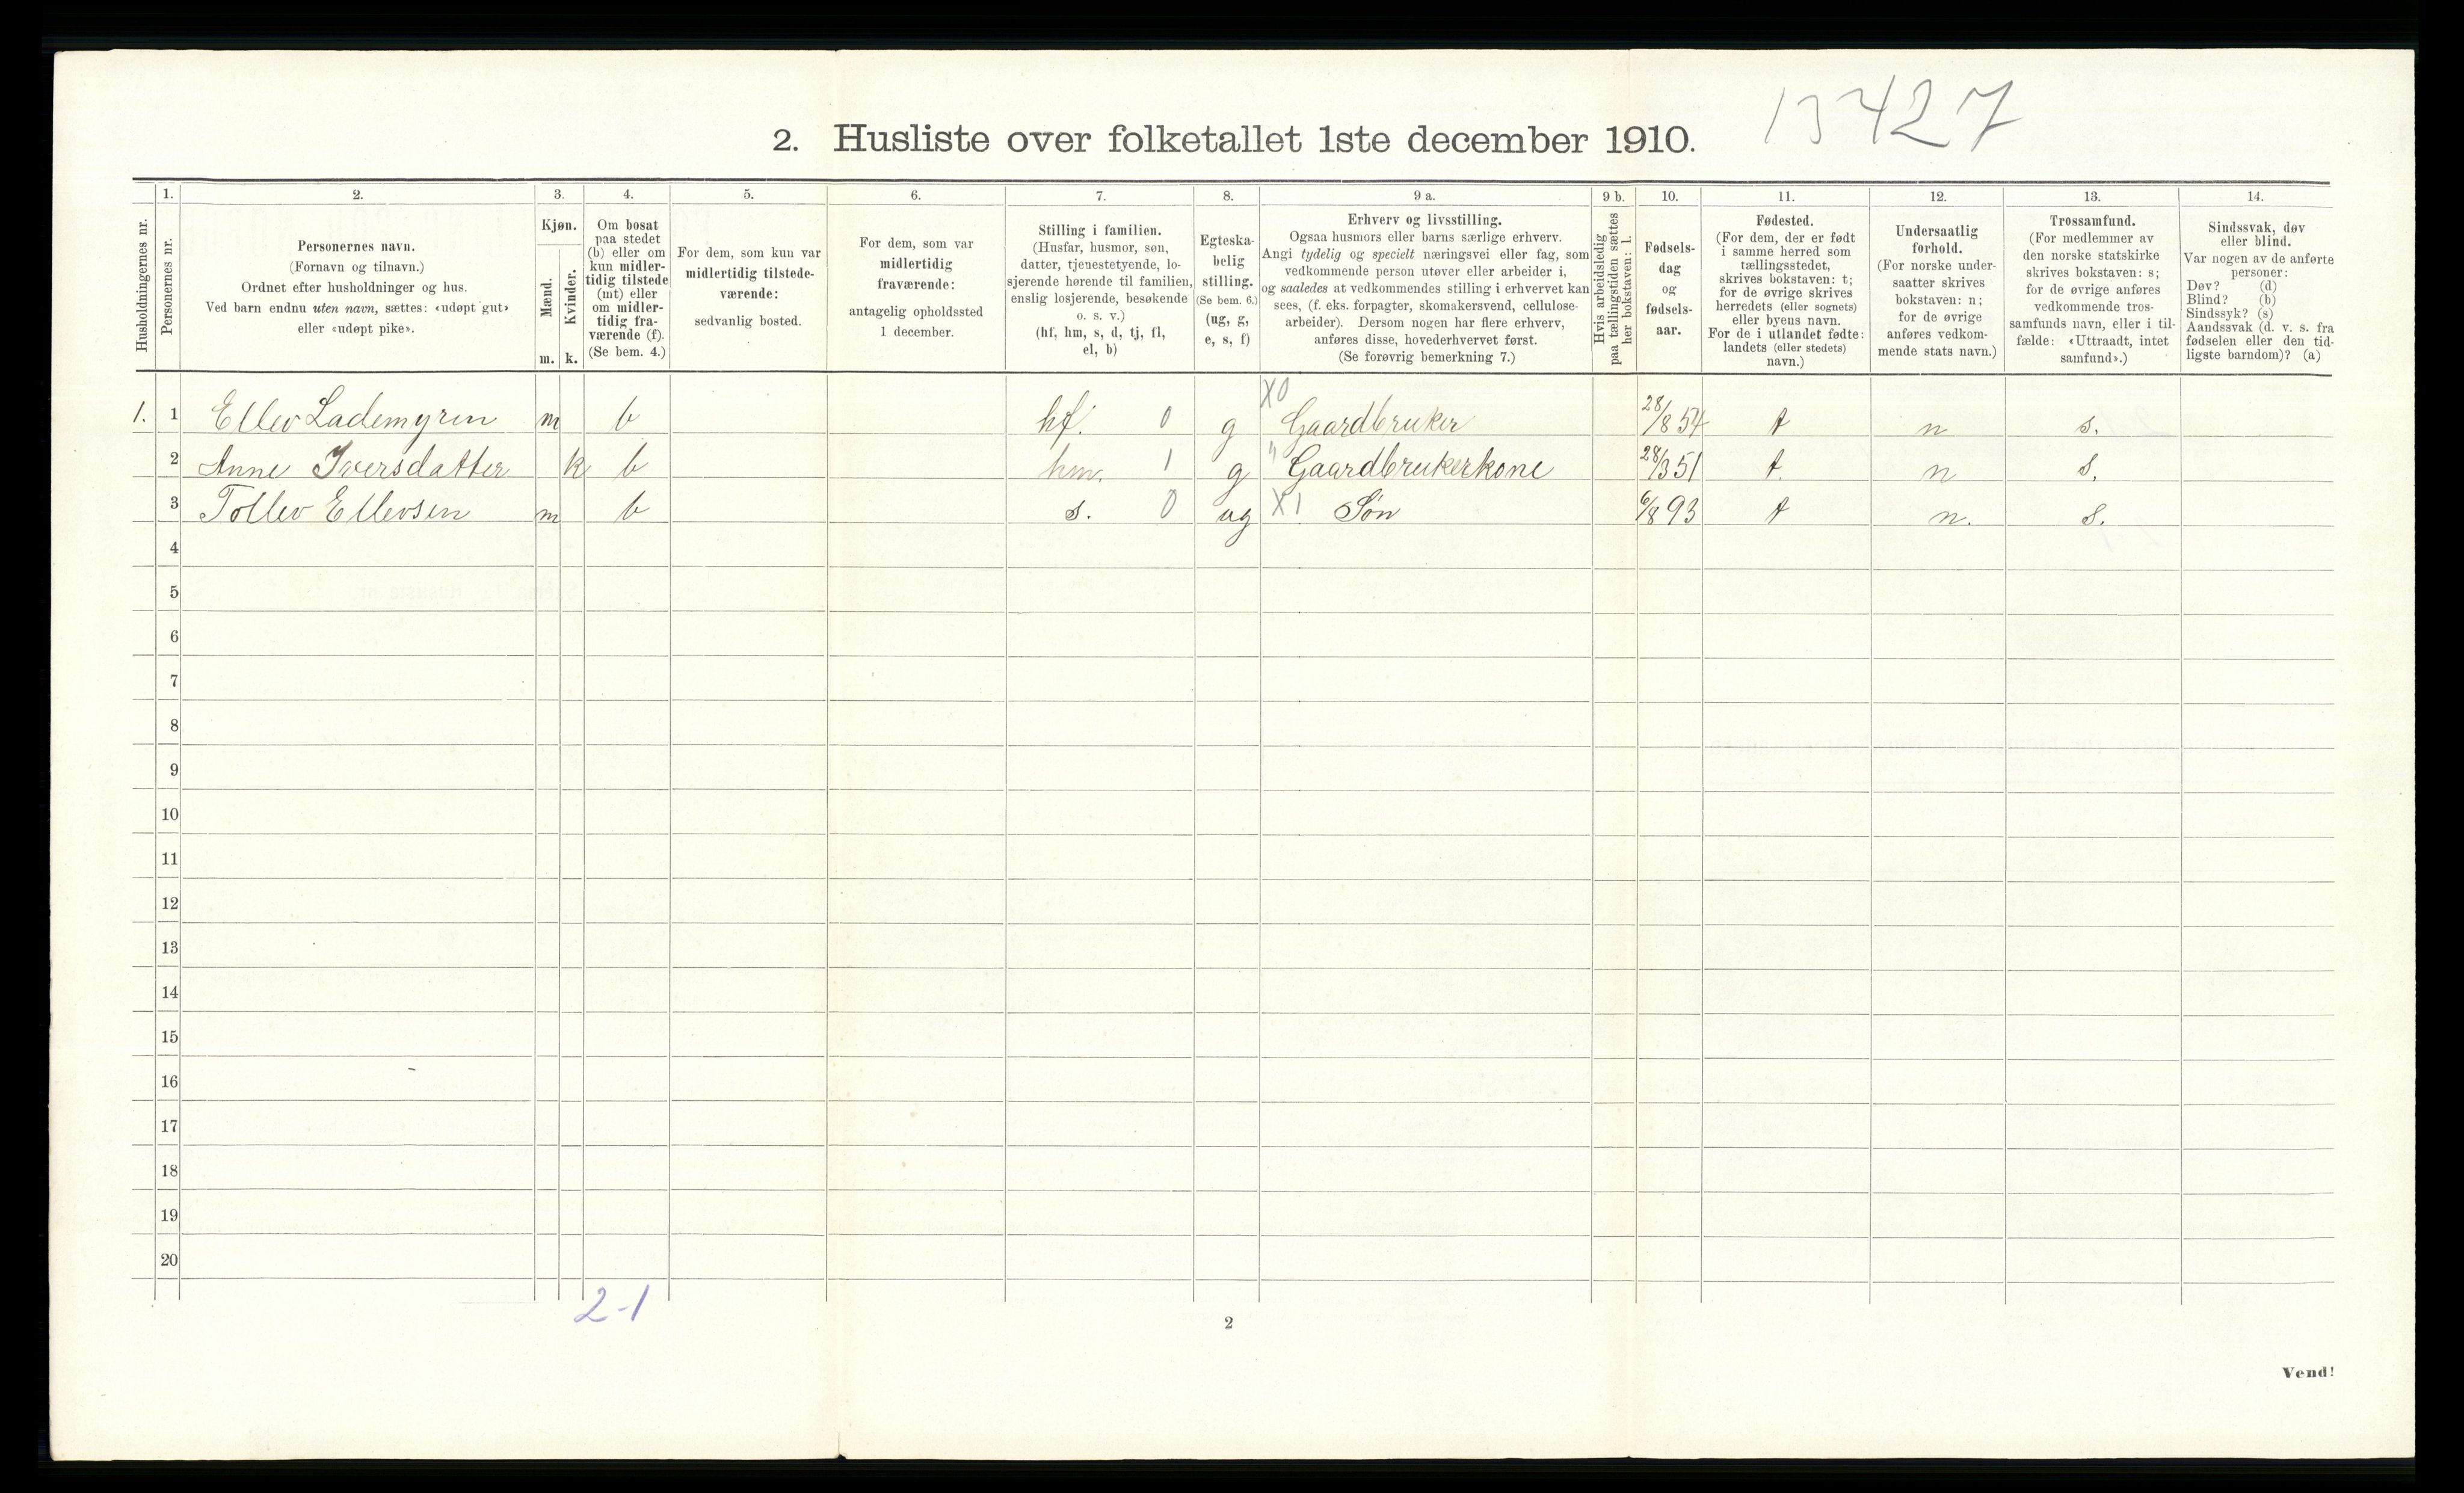 13427
2. Husliste over folketallet 1ste december 1910.
Husholdningernes nr.
1.
Personernes nr.
2.
Personernes navn.
(Fornavn og tilnavn.)
Ordnet efter husholdninger og hus.
Ved barn endnu uten navn, sættes: «udøpt gut»
eller «udøpt pike».
3.
Kjøn.
Mænd.
Kvinder.
m. k.
4.
Om bosat
paa stedet
(b) eller om
kun midler-
tidig tilstede
(mt) eller
om midler-
tidig fra-
værende (f).
(Se bem. 4.)
5.
For dem, som kun var
midlertidig tilstede-
værende:
sedvanlig bosted.
6.
For dem, som var
midlertidig
fraværende:
antagelig opholdssted
1 december.
7.
Stilling i familien.
(Husfar, husmor, søn,
datter, tjenestetyende, lo-
sjerende hørende til familien,
enslig losjerende, besøkende
o. s. v.)
(hf, hm, s, d, tj, fl,
el, b)
8.
Egteska-
belig
stilling.
(Se bem. 6.)
(ug, g,
e, s, f)
9 a.
Erhverv og livsstilling.
Ogsaa husmors eller barns særlige erhverv.
Angi tydelig og specielt næringsvei eller fag, som
vedkommende person utøver eller arbeider i,
og saaledes at vedkommendes stilling i erhvervet kan
sees, (f. eks. forpagter, skomakersvend, cellulose-
arbeider). Dersom nogen har flere erhverv,
anføres disse, hovederhvervet først.
(Se forøvrig bemerkning 7.)
9 b.
Hvis arbeidsledig
paa tællingstiden sættes
her bokstaven: l.
10.
Fødsels-
dag
og
fødsels-
aar.
11.
Fødested.
(For dem, der er født
i samme herred som
tællingsstedet,
skrives bokstaven: t;
for de øvrige skrives
herredets (eller sognets)
eller byens navn.
For de i utlandet fødte:
landets (eller stedets)
navn.)
12.
Undersaatlig
forhold.
(For norske under-
saatter skrives
bokstaven: n;
for de øvrige
anføres vedkom-
mende stats navn.)
13.
Trossamfund.
(For medlemmer av
den norske statskirke
skrives bokstaven: s;
for de øvrige anføres
vedkommende tros-
samfunds navn, eller i til-
fælde: «Uttraadt, intet
samfund».)
14.
Sindssvak, døv
eller blind.
Var nogen av de anførte
personer:
Døv? (d)
Blind? (b)
Sindssyk? (s)
Aandssvak (d. v. s. fra
fødselen eller den tid-
ligste barndom)? (a)
1. 1 Ellev Lademyren m b hf. 0 g X0 Gaardbruker 28/8 54 t n s.
2 Anne Iversdatter k b hm. 1 g " Gaardbrukerkone 28/3 51 t. n s.
3 Tollev Ellevsen m b s. 0 ug X1 Søn 6/8 93 t n. s.
4
5
6
7
8
9
10
11
12
13
14
15
16
17
18
19
20
2-1
2
Vend!